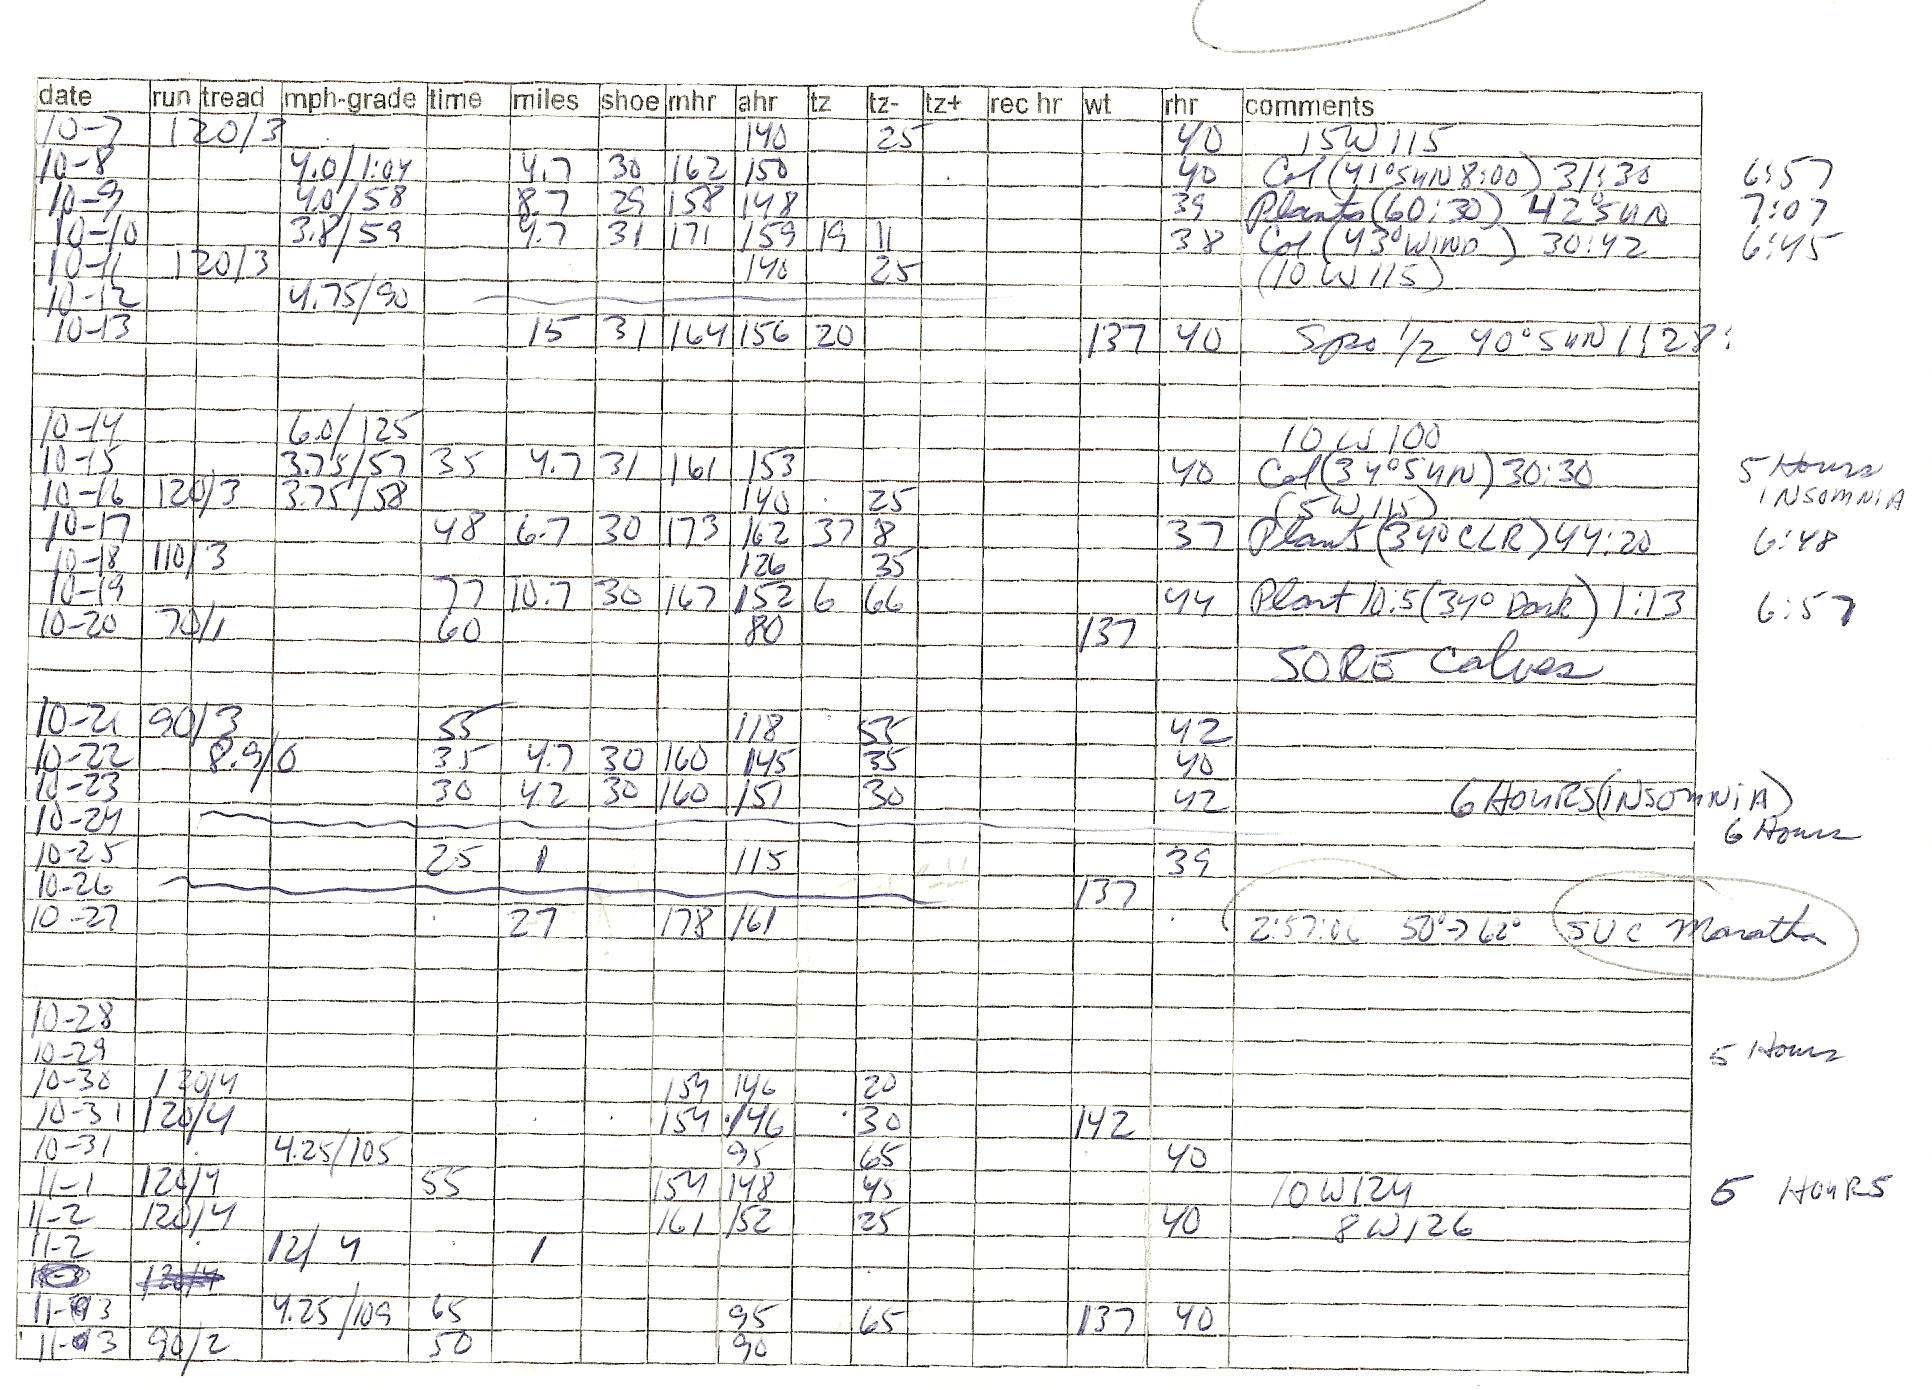 date run tread mph-grade time miles shoe mhr ahr tz tz- tz+ rec hr wt rhr comments
10-7 120/3 140 25 40 15W115
10-8 4.0/1:04 4.7 30 162 150 40 Col (41° SUN 8:00) 31:30 6:57
10-9 4.0/58 8.7 29 158 148 39 Plants (60:30) 42° SUN 7:07
10-10 3.8/59 4.7 31 171 159 19 11 38 Col (43° WIND) 30:42 6:45
10-11 120/3 140 25 (10W115)
10-12 4.75/90
10-13 15 31 164 156 20 137 40 Spo 1/2 40° SUN 1:28:
10-14 6.0/125 10W100
10-15 3.75/57 35 4.7 31 161 153 40 Col (34° SUN) 30:30 5 Hours
10-16 120/3 3.75/58 140 25 (5W115) INSOMNIA
10-17 48 6.7 30 173 162 37 8 37 Plants (34° CLR) 44:20 6:48
10-18 110/3 126 35
10-19 77 10.7 30 167 152 6 66 44 Plant 10.5 (34° Dark) 1:13 6:57
10-20 70/1 60 80 137
SORE Calves
10-21 90/3 55 118 55 42
10-22 8.9/0 35 4.7 30 160 145 35 40
10-23 30 4.2 30 160 151 30 42 6 HOURS (INSOMNIA)
10-24 6 Hours
10-25 25 1 115 39
10-26 137
10-27 27 178 161 2:57:06 50°→62° SUC Marathon
10-28
10-29 5 Hours
10-30 130/4 154 146 20
10-31 120/4 154 146 30 142
10-31 4.25/105 95 65 40
11-1 120/4 55 154 148 45 10W124 5 HOURS
11-2 120/4 161 152 25 40 8W126
11-2 12/4 1
120/4
11-3 4.25/109 65 95 65 137 40
11-3 90/2 50 90